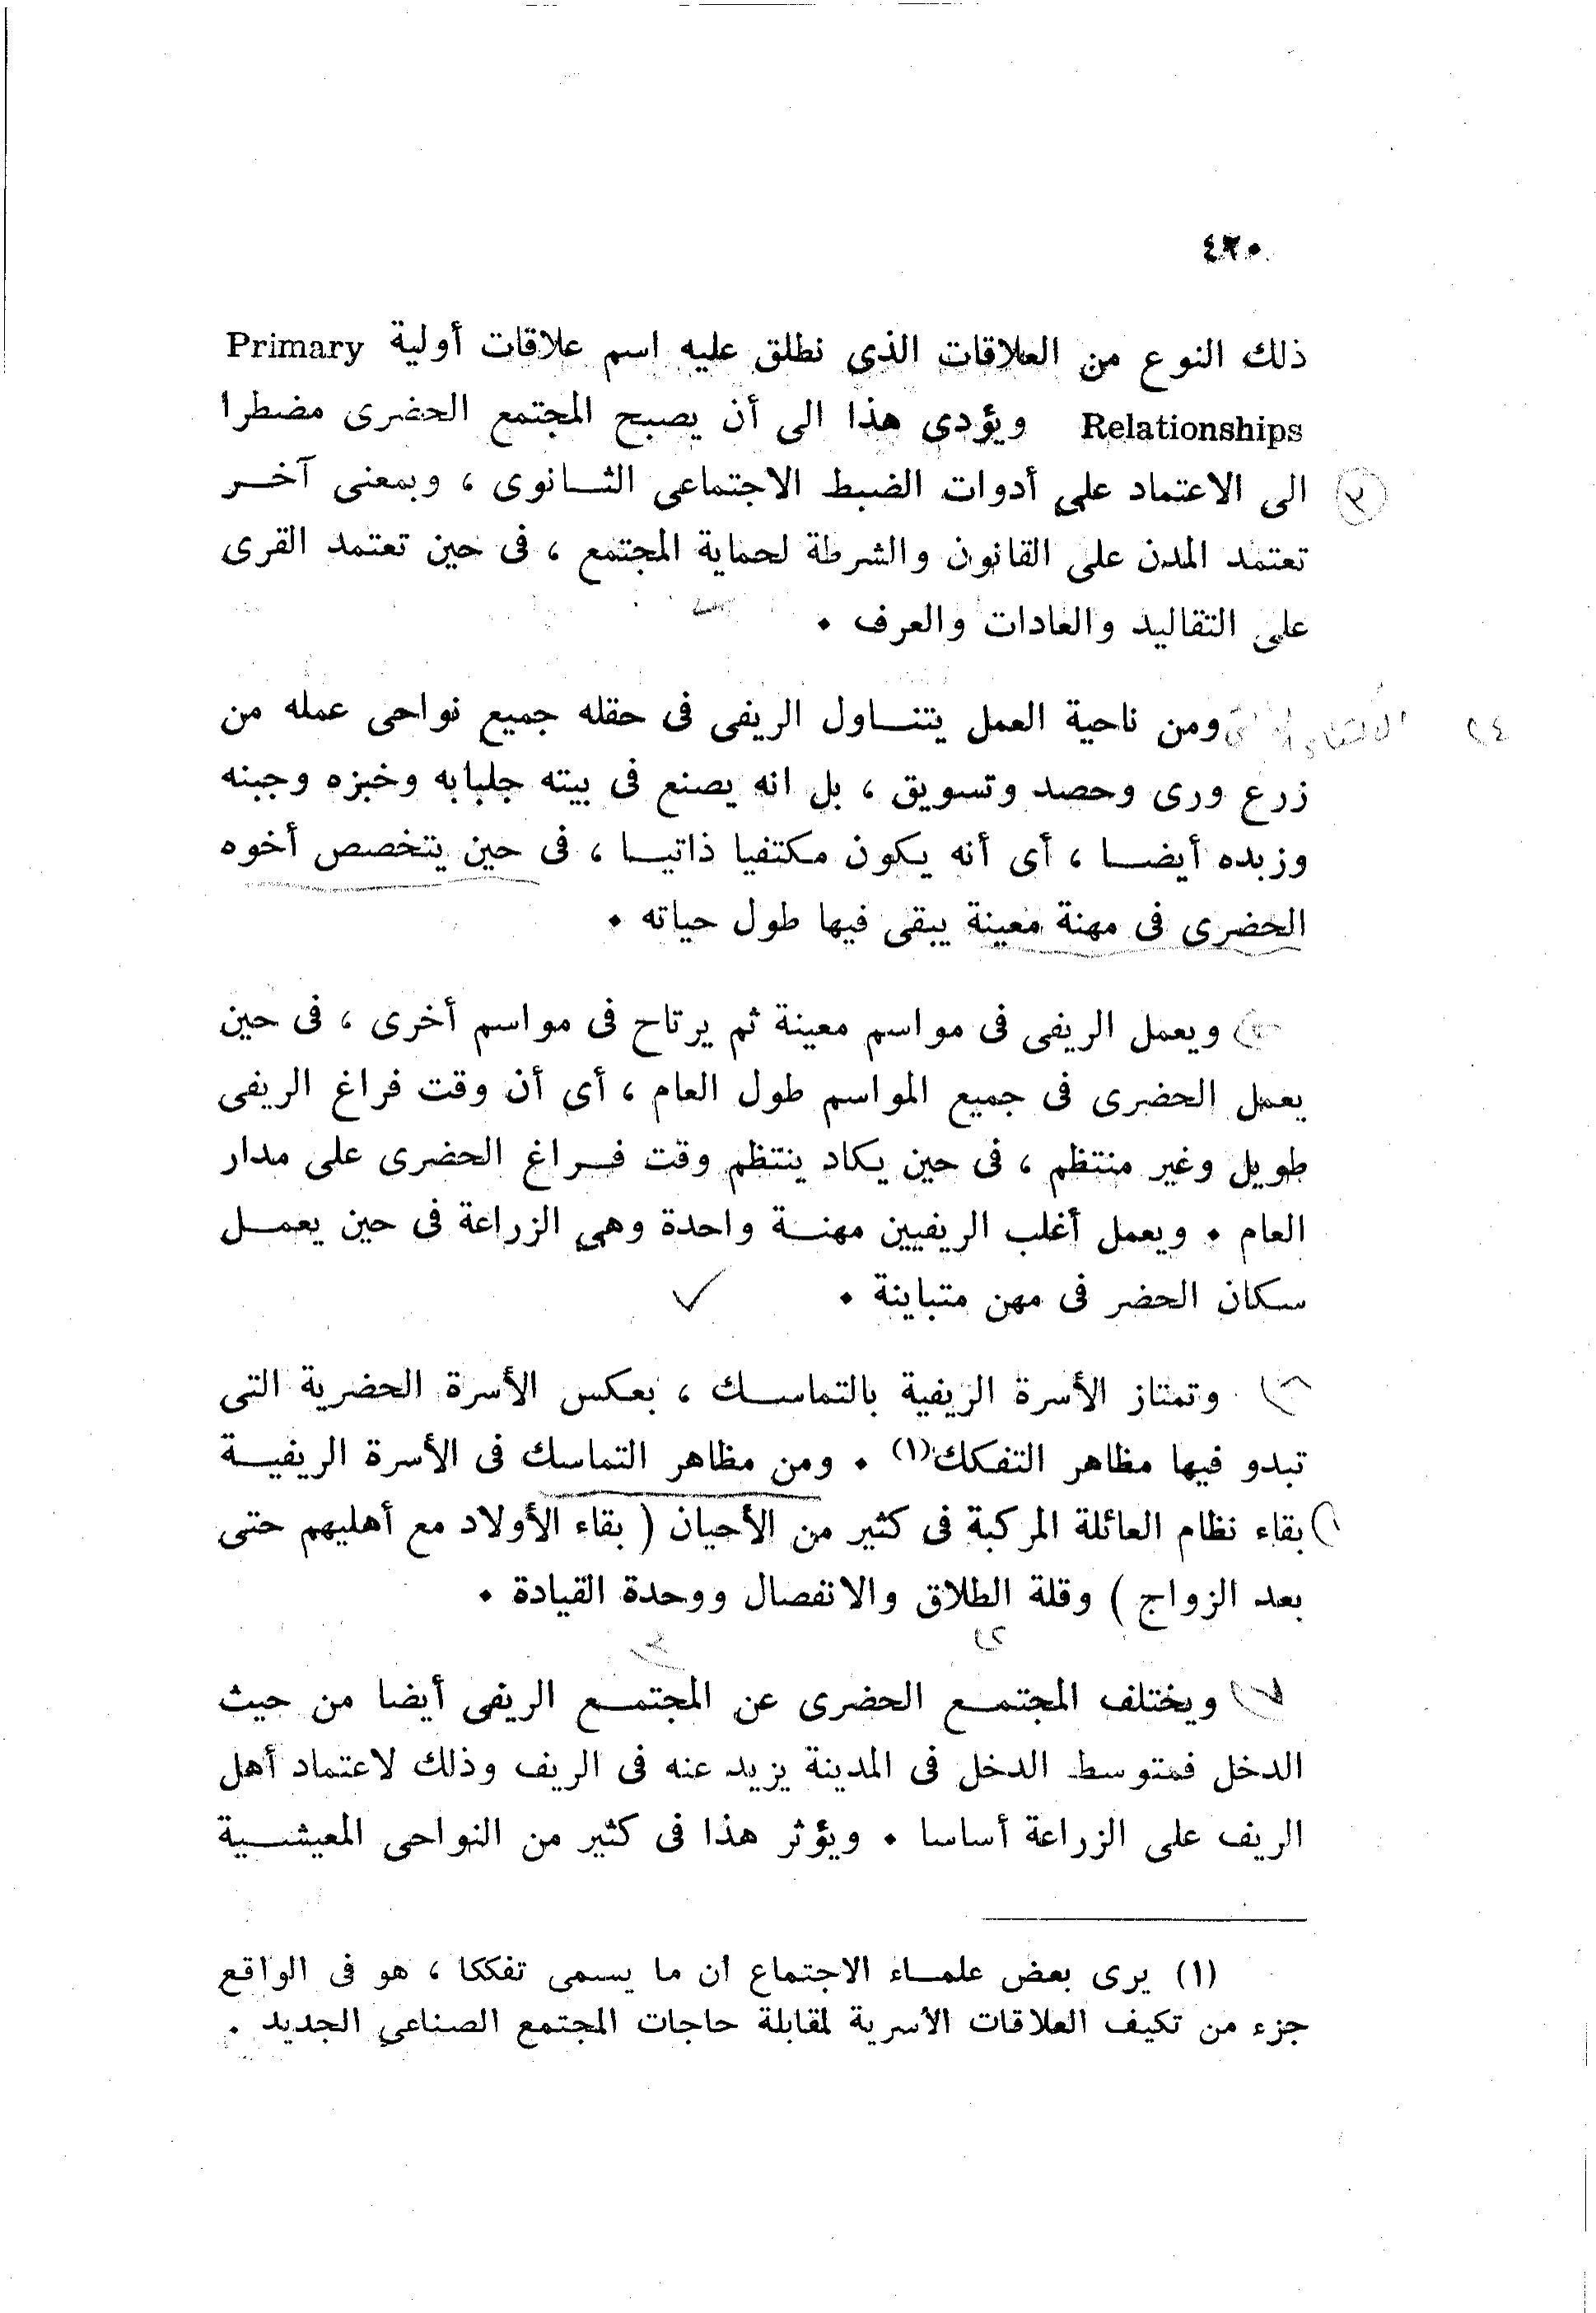 ذلك النوع من العلاقات الذى نطلق عليه اسم علاقات أولية Primary
Relationships ويؤدى هذا الى أن يصبح المجتمع الحضرى مضطرا
الى الاعتماد على أدوات الضبط الاجتماعى الثانوى ، وبمعنى آخر
تعتمد المدن على القانون والشرطة لحماية المجتمع ، فى حين تعتمد القرى
على التقاليد والعادات والعرف .
٤) ومن ناحية العمل يتناول الريفى فى حقله جميع نواحى عمله من
زرع ورى وحصد وتسويق ، بل انه يصنع فى بيته جلبابه وخبزه وجبنه
وزبده أيضا ، أى أنه يكون مكتفيا ذاتيا ، فى حين يتخصص أخوه
الحضرى فى مهنة معينة يبقى فيها طول حياته .
ويعمل الريفى فى مواسم معينة ثم يرتاح فى مواسم أخرى ، فى حين
يعمل الحضرى فى جميع المواسم طول العام ، أى أن وقت فراغ الريفى
طويل وغير منتظم ، فى حين يكاد ينتظم وقت فراغ الحضرى على مدار
العام . ويعمل أغلب الريفيين مهنة واحدة وهى الزراعة فى حين يعمل
سكان الحضر فى مهن متباينة .
وتمتاز الأسرة الريفية بالتماسك ، بعكس الأسرة الحضرية التى
تبدو فيها مظاهر التفكك(١) . ومن مظاهر التماسك فى الأسرة الريفية
١) بقاء نظام العائلة المركبة فى كثير من الأحيان ( بقاء الأولاد مع أهليهم حتى
بعد الزواج ) وقلة الطلاق والانفصال ووحدة القيادة .
٢)
ويختلف المجتمع الحضرى عن المجتمع الريفى أيضا من حيث
الدخل فمتوسط الدخل فى المدينة يزيد عنه فى الريف وذلك لاعتماد أهل
الريف على الزراعة أساسا . ويؤثر هذا فى كثير من النواحى المعيشية
(١) يرى بعض علماء الاجتماع ان ما يسمى تفككا ، هو فى الواقع
جزء من تكيف العلاقات الأسرية لمقابلة حاجات المجتمع الصناعى الجديد .